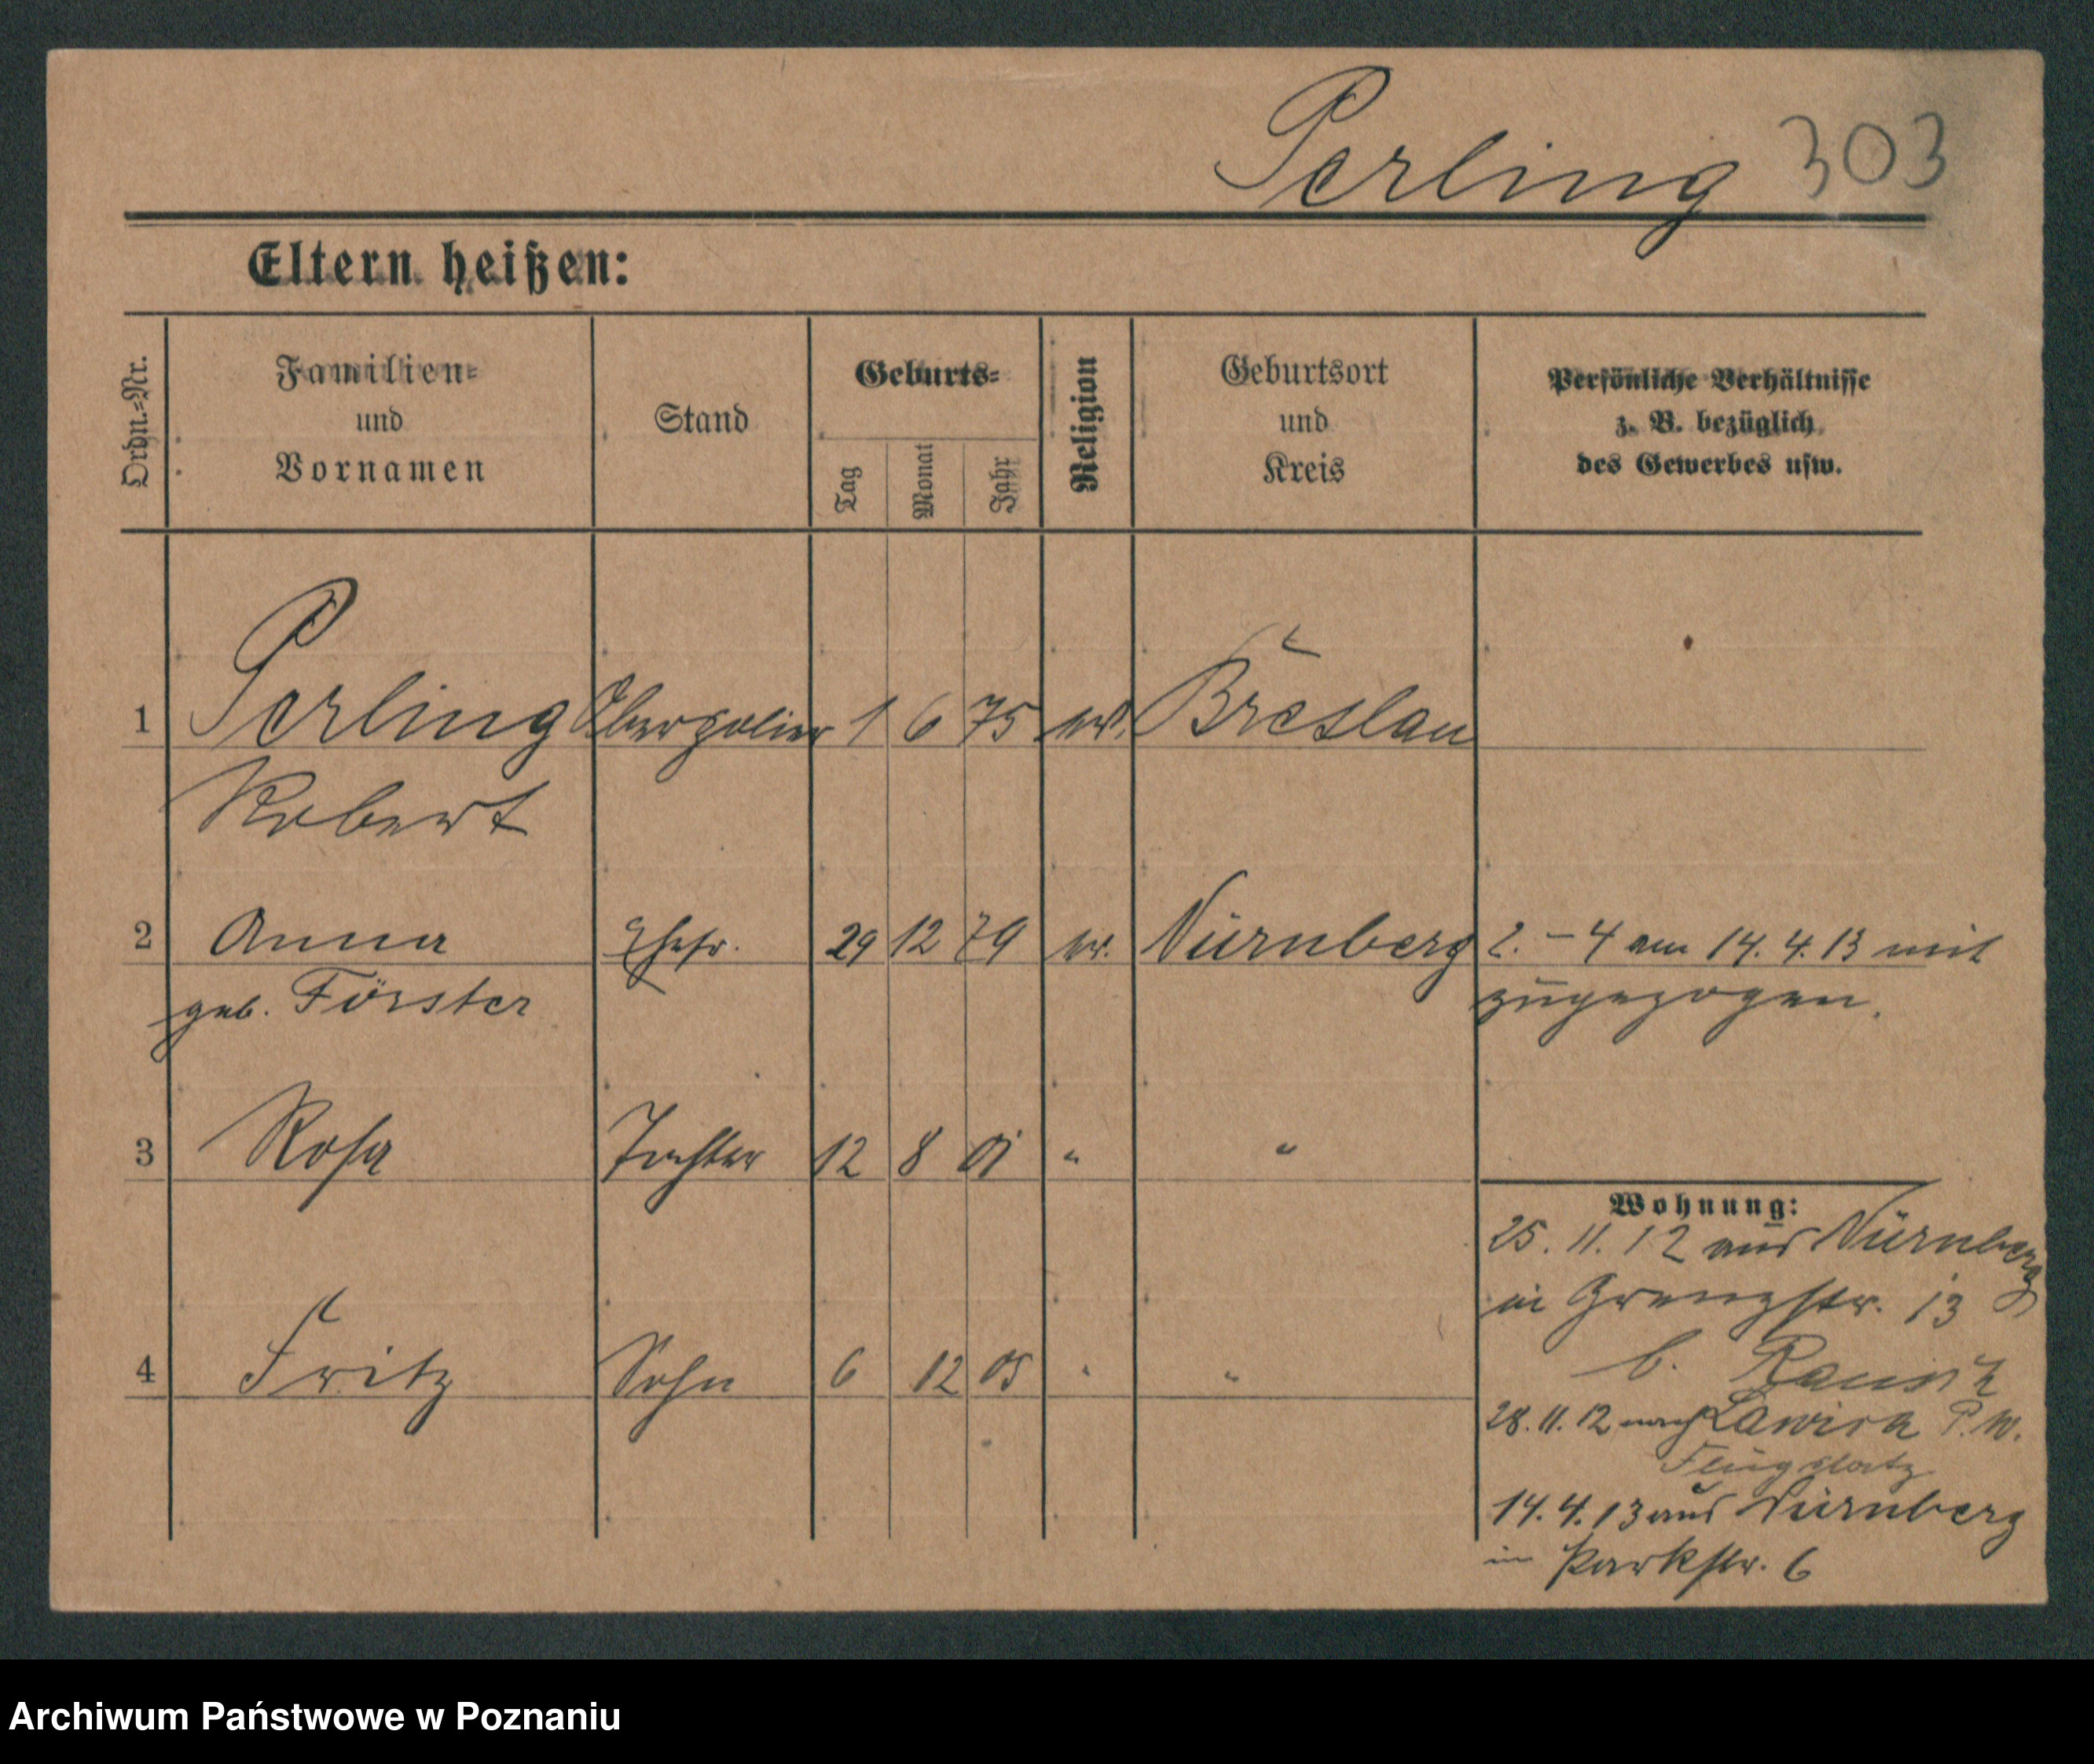 Perling 303
Eltern heißen:
Ordn.-Nr.
Familien-
und
Vornamen
Stand
Geburts-
Tag
Monat
Jahr
Religion
Geburtsort
und
Kreis
Persönliche Verhältnisse
z. B. bezüglich
des Gewerbes usw.
1 Perling Oberpolier 1 6 75 Breslau
Robert
2 Anna Ehefr. 29 12 79 Nürnberg 2. - 4 am 14. 4. 13 mit
geb. Förster zugezogen.
3 Rosa Tochter 12 8 01 " "
Wohnung:
25. 11. 12 aus Nürnberg
in Grenzstr. 13
4 Fritz Sohn 6 12 05 " "
b.
28. 11. 12 nach Lawica P. W.
Flugplatz
14. 4. 13 aus Nürnberg
in Parkstr. 6
Archiwum Państwowe w Poznaniu